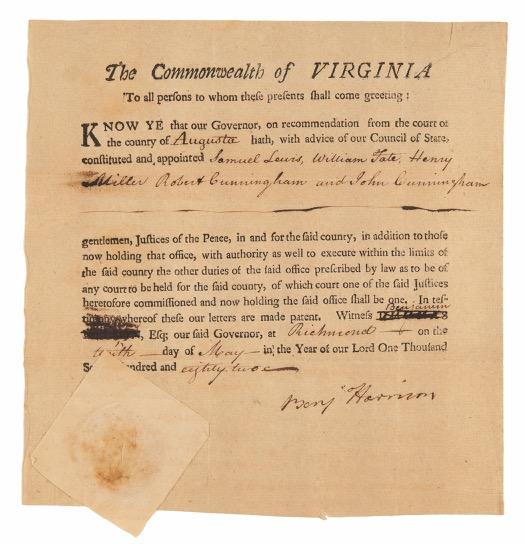 The Commonwealth of VIRGINIA
To all persons to whom these presents shall come greeting:
KNOW YE that our Governor, on recommendation from the court of
the county of Augusta hath, with advice of our Council of State,
constituted and appointed Samuel Lewis, William Tate, Henry
Miller Robert Cunningham and John Cunningham
gentlemen, Justices of the Peace, in and for the said county, in addition to those
now holding that office, with authority as well to execute within the limits of
the said county the other duties of the said office prescribed by law as to be of
any court to be held for the said county, of which court one of the said Justices
heretofore commissioned and now holding the said office shall be one. In tes-
Benjamin
whereof these our letters are made patent. Witness
Esq; our said Governor, at Richmond on the
day of May in the Year of our Lord One Thousand
hundred and eighty two
Benj. Harrison